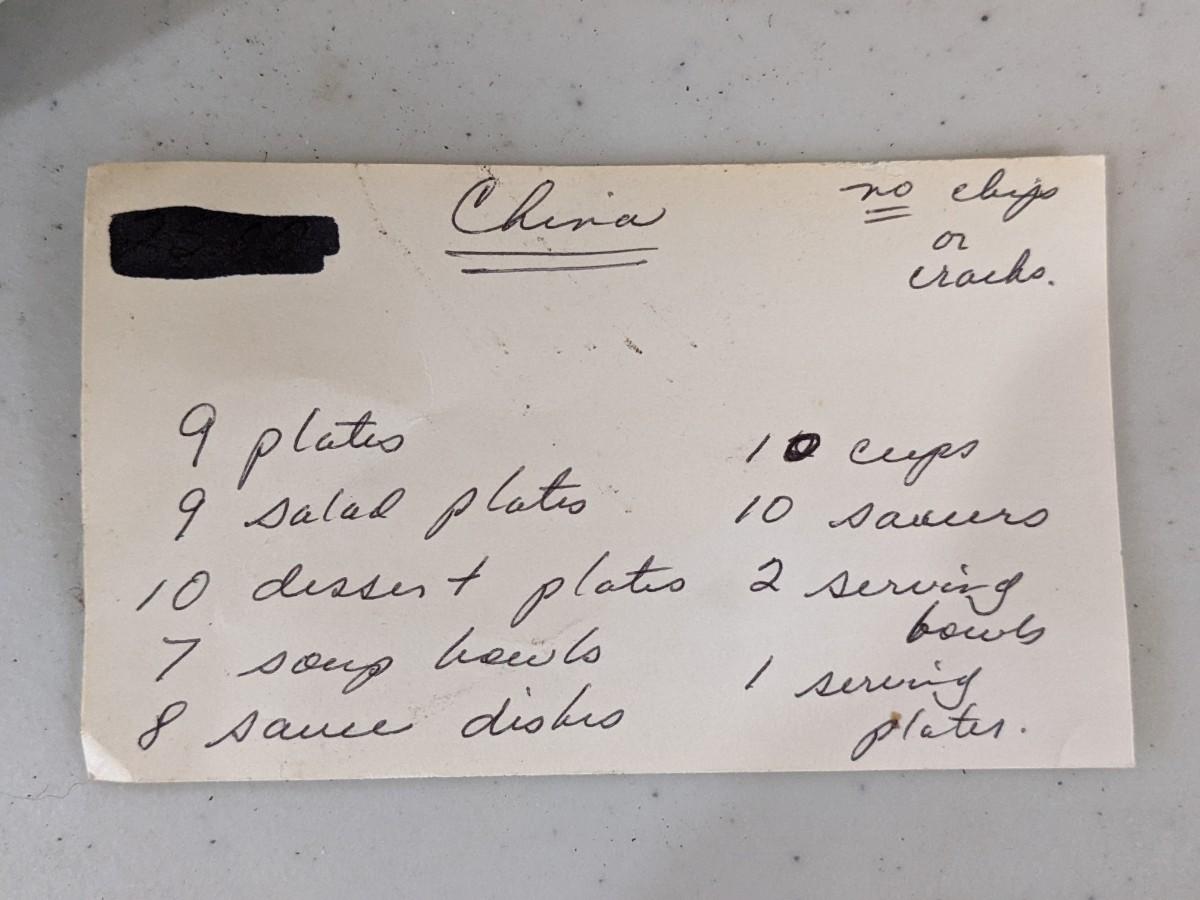 China
no chips
or
cracks.
9 plates
9 salad plates
10 dessert plates
7 soup bowls
8 sauce dishes
10 cups
10 saucers
2 serving
bowls
1 serving
plater.